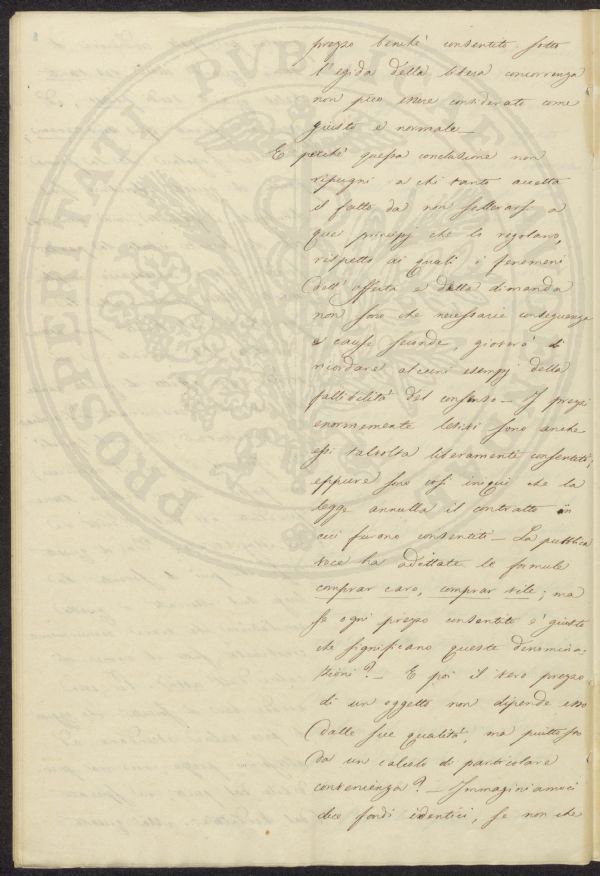 prezzo benchè consentito sotto
l'egida della libera concorrenza
non può essere considerato come
giusto e normale_
E perchè questa conclusione non
ripugni a chi tanto accetta
il fatto da non sollevarsi a
quei principj che lo regolano,
rispetto ai quali i fenomeni
dell'offerta e della dimanda
non sono che necessarie conseguenze
e cause seconde, gioverà di
ricordare alcuni esempj della
fallibilità del consenso_ I prezzi
enormemente lesivi sono anche
essi talvolta liberamente consentiti,
eppure sono così iniqui che la
legge annulla il contratto in
cui furono consentiti_ La pubblica
voce ha adottate le formule
comprar caro, comprar vile; ma
se ogni prezzo consentito è giusto
che significano queste denomina-
zioni?_ E poi il vero prezzo
di un oggetto non dipende esso
dalle sue qualità, ma piuttosto
da un calcolo di particolare
convenienza?_ Immaginiamoci
due fondi identici, se non che
PROSPERITATI PVBLICAE